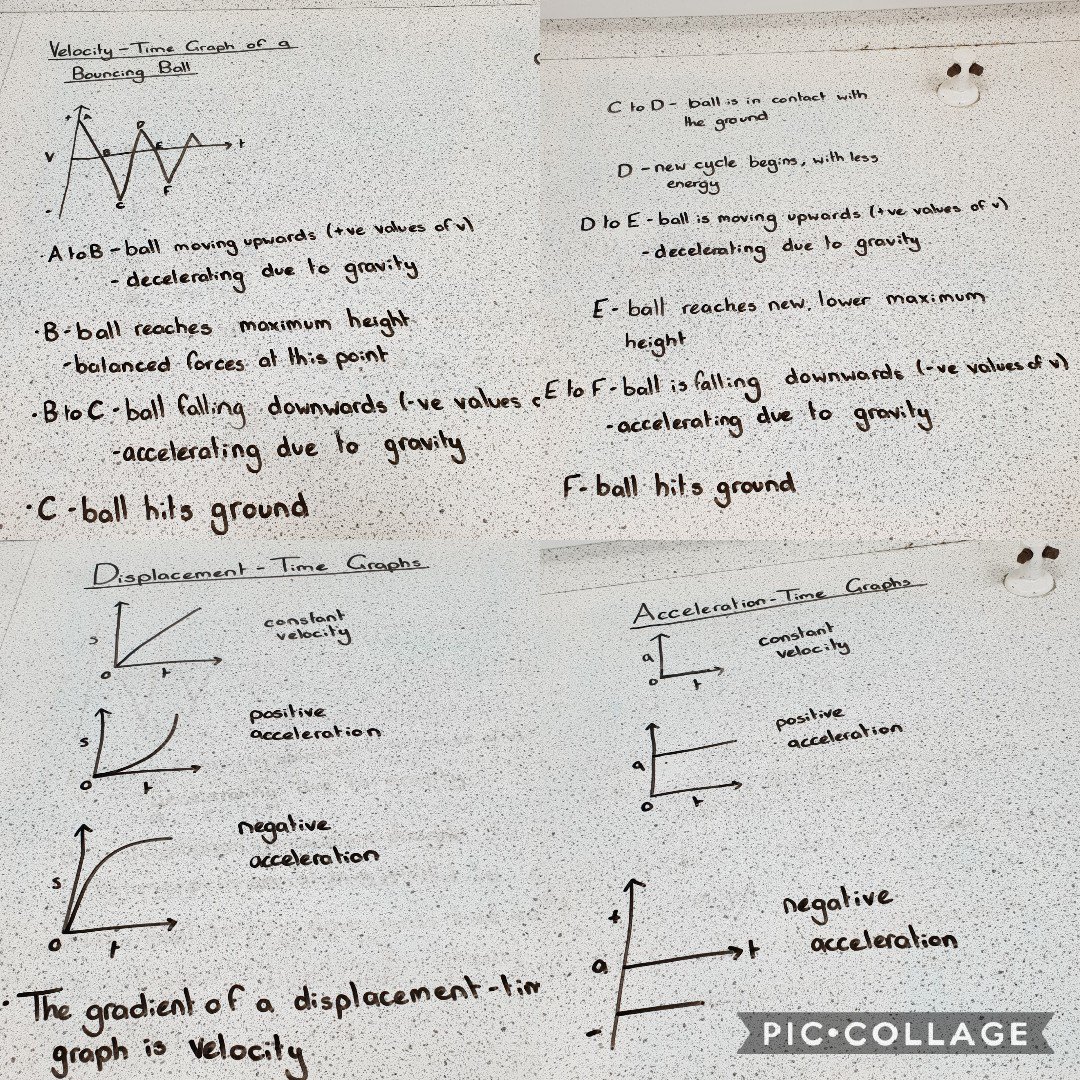 Velocity-Time Graph of a
Bouncing Ball
+ A
D
V B E t
-
C F
·A to B - ball moving upwards (+ve values of v)
- decelerating due to gravity
·B - ball reaches maximum height
- balanced forces at this point
·B to C - ball falling downwards (-ve values
- accelerating due to gravity
·C - ball hits ground
C to D - ball is in contact with
the ground
D - new cycle begins, with less
energy
D to E - ball is moving upwards (+ve values of v)
- decelerating due to gravity
E - ball reaches new, lower maximum
height
E to F - ball is falling downwards (-ve values of v)
- accelerating due to gravity
F - ball hits ground
Displacement-Time Graphs
s
0 t
constant
velocity
s
0 t
positive
acceleration
s
0 t
negative
acceleration
· The gradient of a displacement-tim
graph is velocity
Acceleration-Time Graphs
a
0 t
constant
velocity
a
0 t
positive
acceleration
+
a t
-
negative
acceleration
PIC•COLLAGE